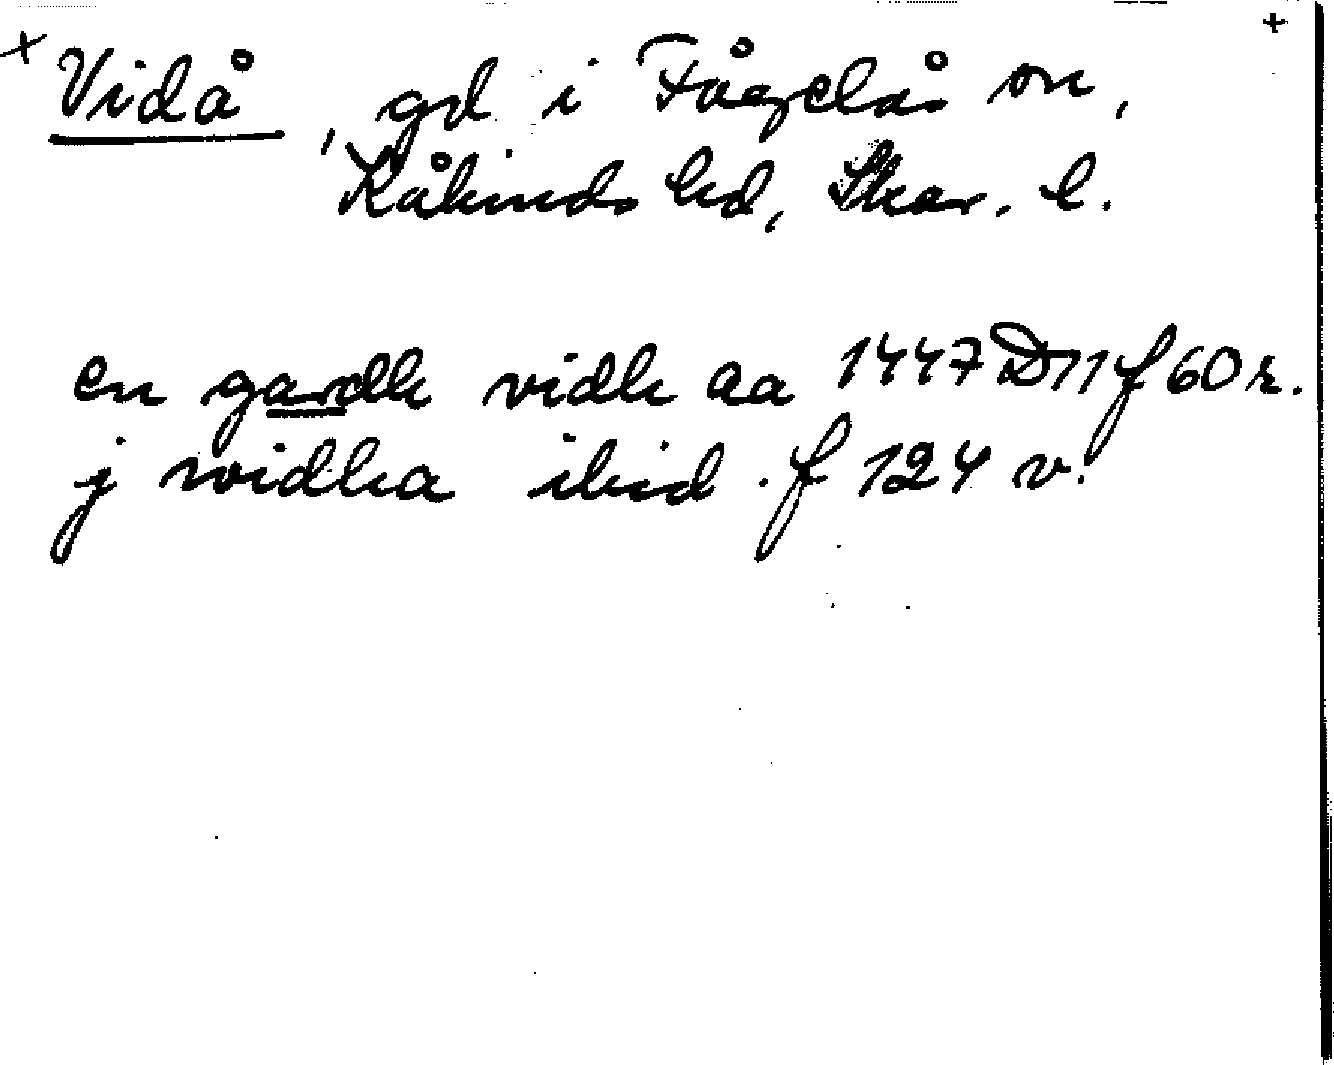 Vidå, gd i Fågelås sn,
Kåkinds hd, Skar. l.
en gardh vidh aa 1447 D11 f 60 r.
j widha ibid. f 124 v.